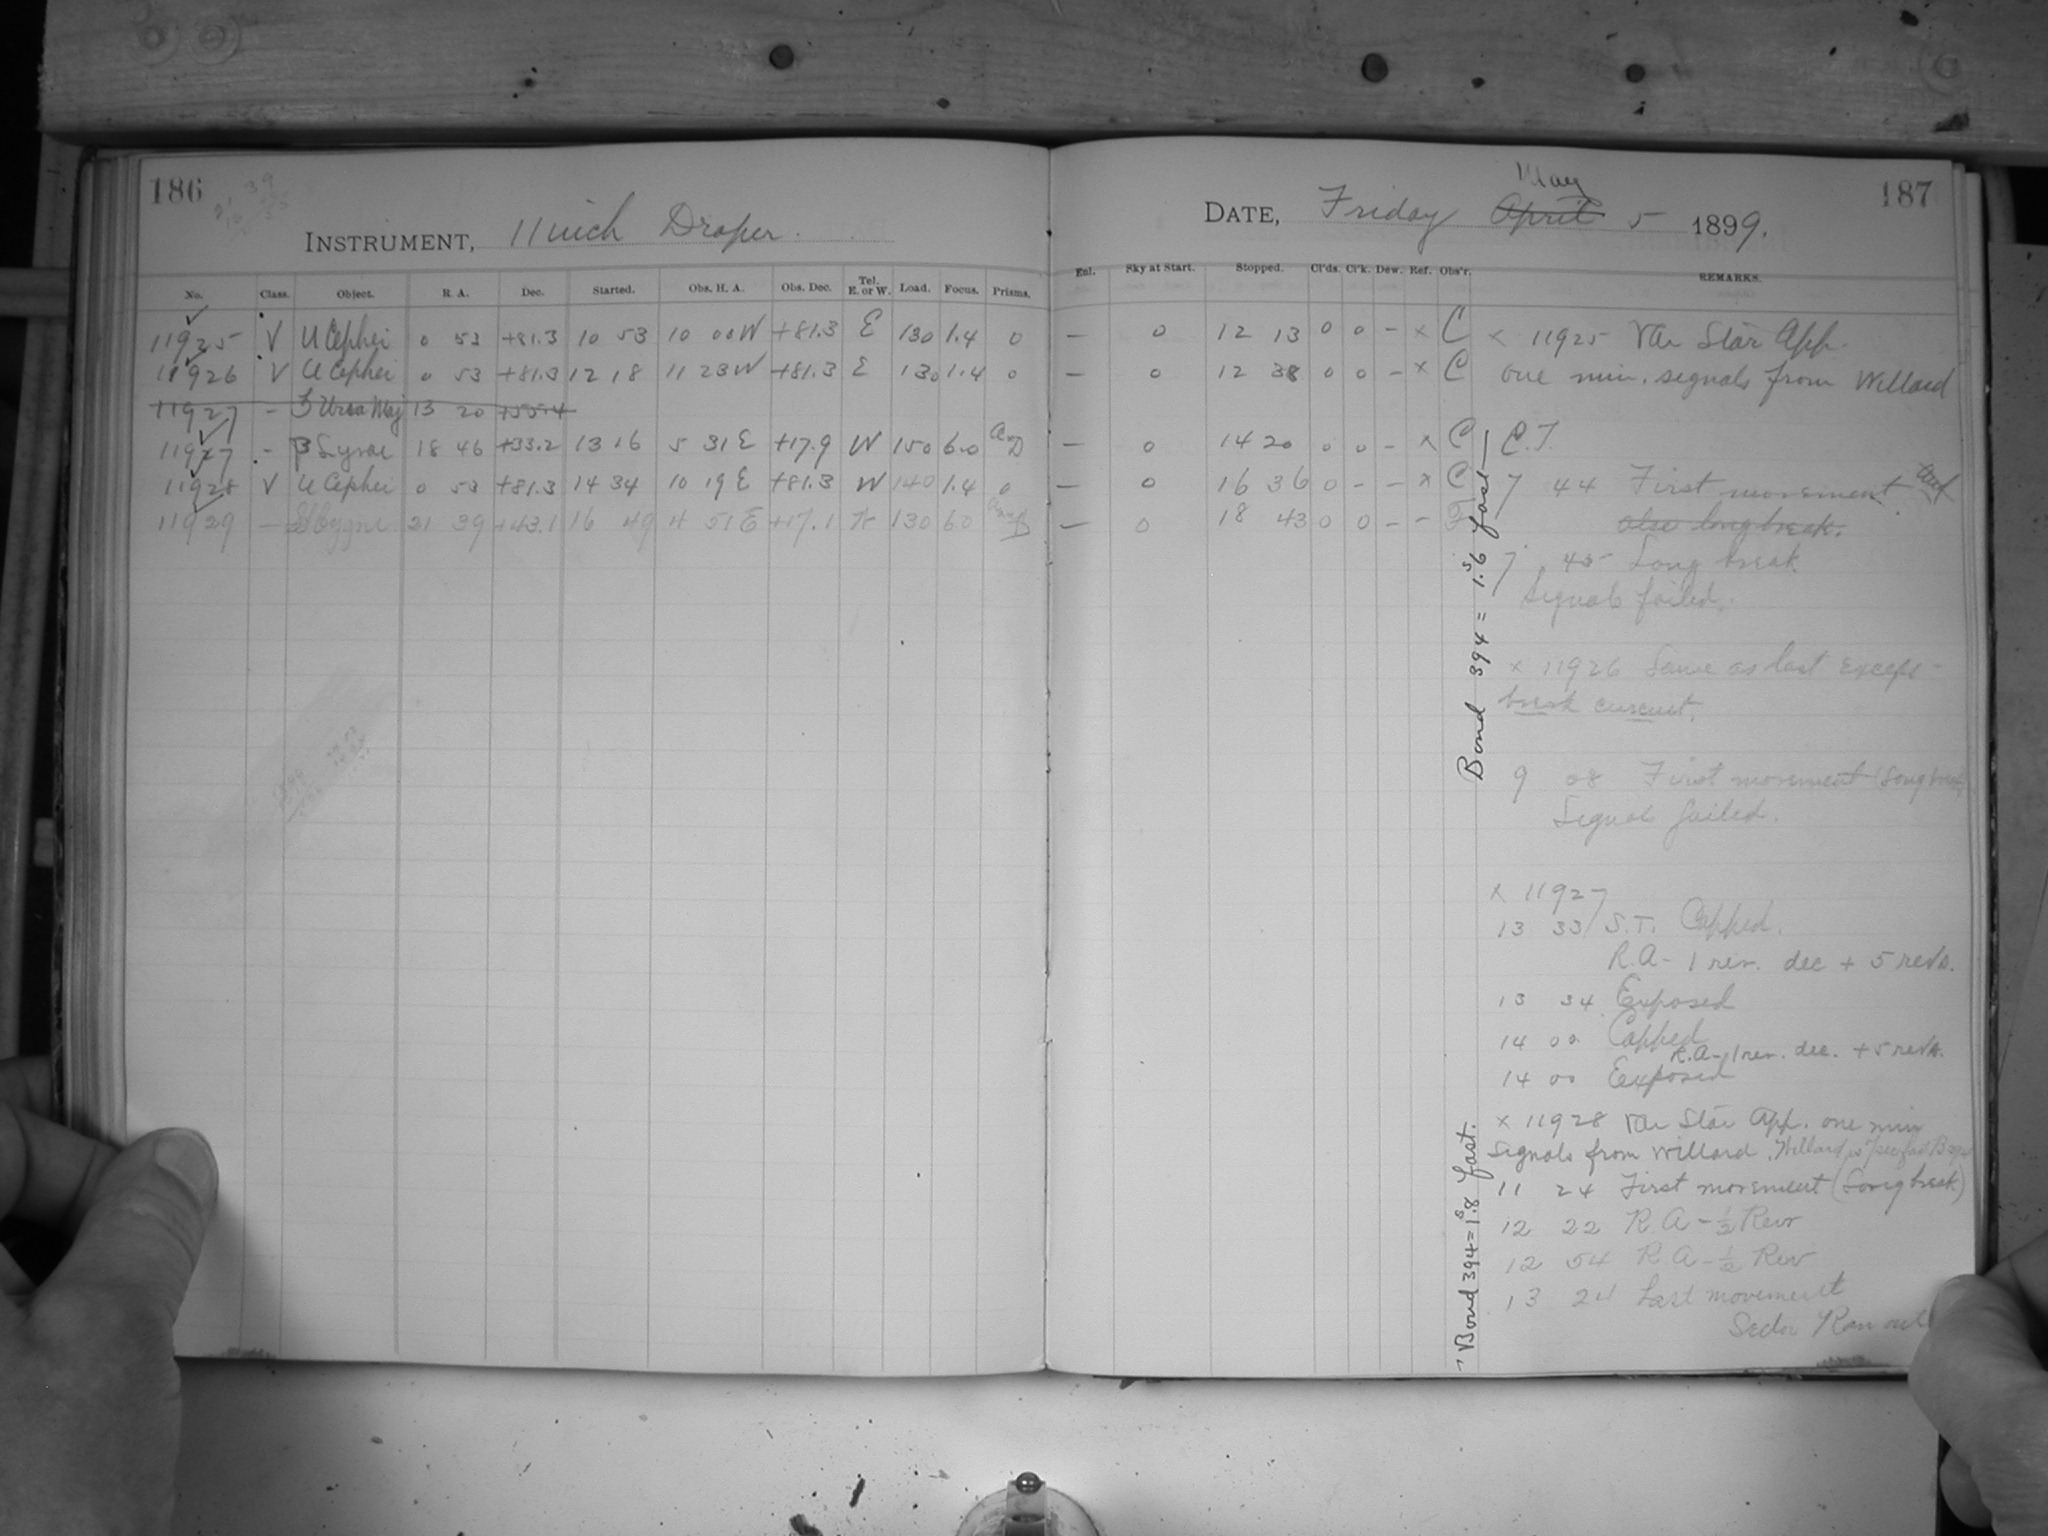 186
INSTRUMENT, 11 inch Draper.
No. Class. Object. R. A. Dec. Started. Obs. H. A. Obs. Dec. Tel. E. or W. Load. Focus. Prisms.
11925 V U Cephei 0 53 +81.3 10 53 10 00 W +81.3 E 130 1.4 0
11926 V U Cephei 0 53 +81.3 12 18 11 23 W +81.3 E 130 1.4 0
11927 - ζ Ursa Maj 13 20 +55.4
11927 - β Lyrae 18 46 +33.2 13 16 5 31 E +17.9 W 150 6.0
11928 V U Cephei 0 53 +81.3 14 34 10 19 E +81.3 W 140 1.4 0
11929 - Cygni 21 39 +43.1 16 49 4 51 E +17.1 W 130 6.0
187
DATE, Friday April May 5 1899.
Enl. Sky at Start. Stopped. Cl'ds. Cl'k. Dew. Ref. Obs'r. REMARKS.
— 0 12 13 0 0 - x C
— 0 12 38 0 0 - x C
— 0 14 20 0 0 - x C
— 0 16 36 0 - - x C
— 0 18 43 0 0 - - F
x 11925 Var Star App.
one min. signals from Willard
C.T.
7 44 First movement.
also long break.
7 45 Long break
Signals failed.
x 11926 Same as last except
break circuit.
9 08 First movement (Long break)
Signals failed.
x 11927
13 33 S.T. Capped.
R.A - 1 rev. dec + 5 revs.
13 34 Exposed
14 00 Capped
R.A - 1 rev. dec. + 5 revs.
14 00 Exposed
x 11928 Var Star App. one min
Signals from Willard. Willard is fast
11 24 First movement (Long break)
12 22 R.A - ½ Rev
12 54 R.A - ½ Rev
13 24 Last movement
Ran out
Bond 394 = 1.6s fast
Bond 394 = 1.8s fast.